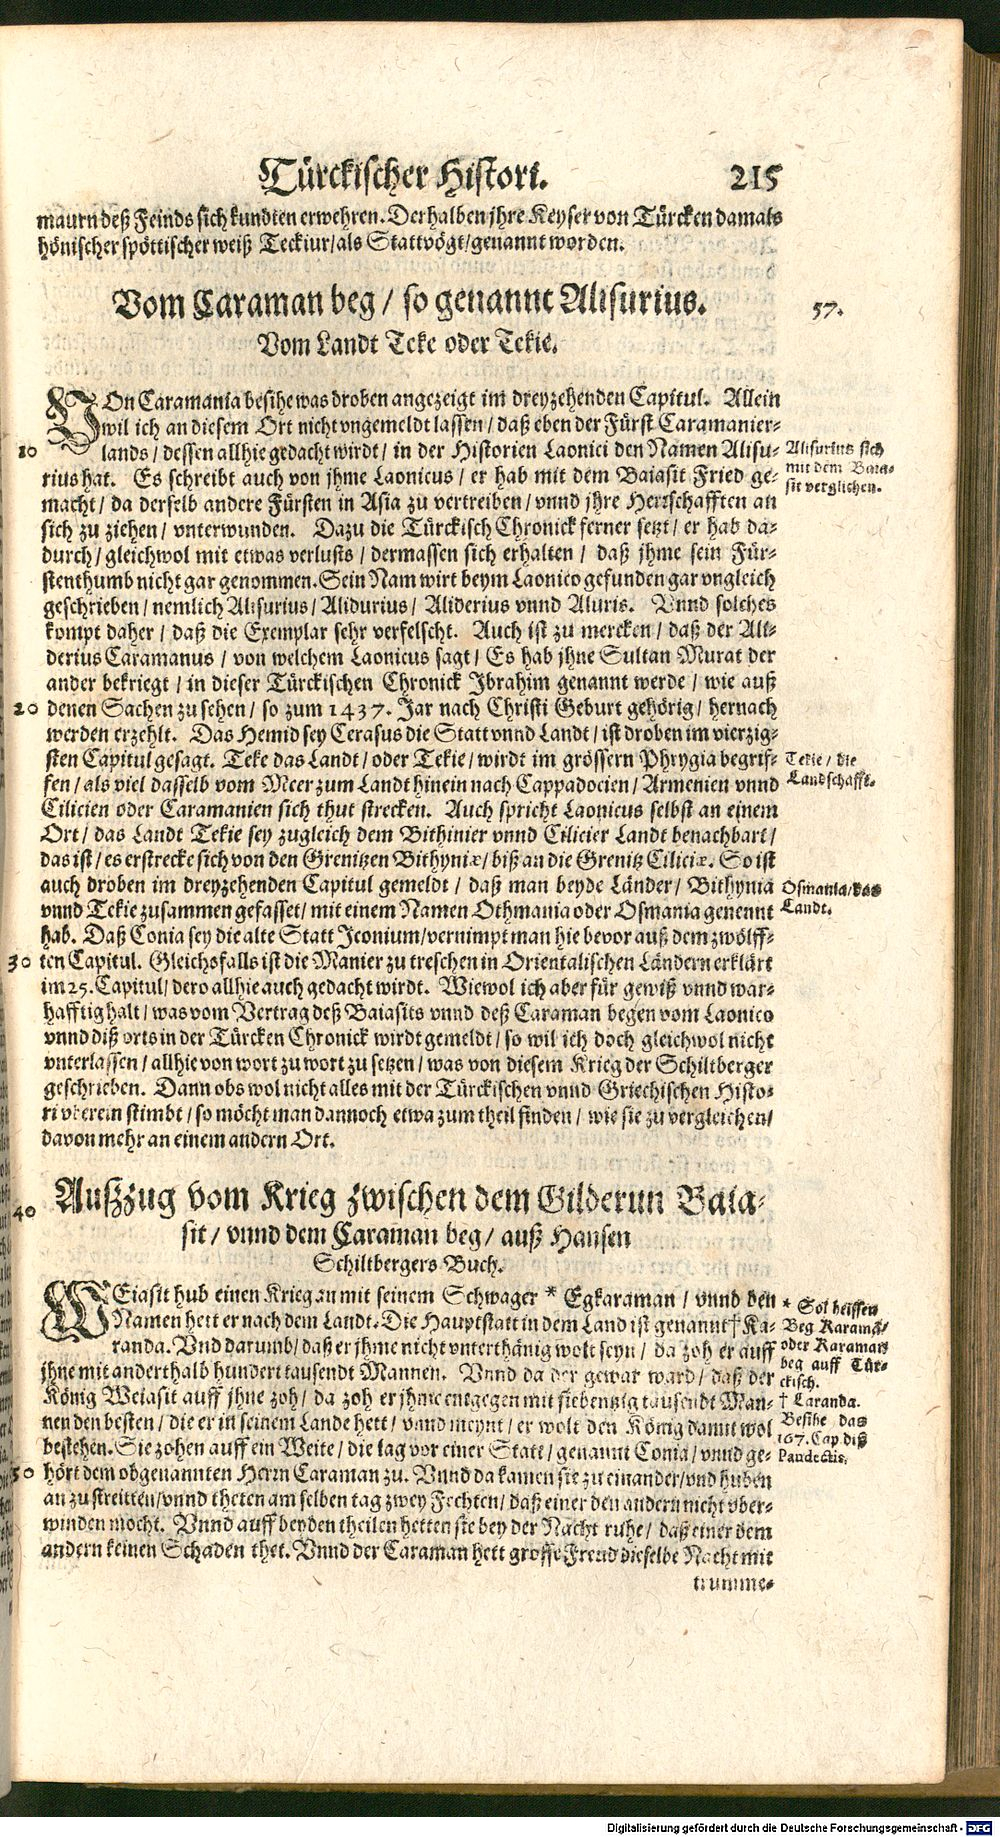 Türckischer Histori. 215
maurn deß Feinds sich kundten erwehren. Derhalben jhre Keyser von Türcken damals
hönischer spöttischer weiß Teckiur/als Stattvögt/genannt worden.
Vom Caraman beg / so genannt Alisurius.
57.
Vom Landt Teke oder Tekie.
VOn Caramania besihe was droben angezeigt im dreyzehenden Capitul. Allein
wil ich an diesem Ort nicht vngemeldt lassen / daß eben der Fürst Caramanier-
10 lands / dessen allhie gedacht wirdt / in der Historien Laonici den Namen Alisu-
Alisurius sich
mit dem Baia-
sit verglichen.
rius hat. Es schreibt auch von jhme Laonicus / er hab mit dem Baiasit Fried ge-
macht / da derselb andere Fürsten in Asia zu vertreiben / vnnd jhre Herrschafften an
sich zu ziehen / vnterwunden. Dazu die Türckisch Chronick ferner setzt / er hab da-
durch / gleichwol mit etwas verlusts / dermassen sich erhalten / daß jhme sein Für-
stenthumb nicht gar genommen. Sein Nam wirt beym Laonico gefunden gar vngleich
geschrieben / nemlich Alisurius / Alidurius / Aliderius vnnd Aluris. Vnnd solches
kompt daher / daß die Exemplar sehr verfelscht. Auch ist zu mercken / daß der Ali-
derius Caramanus / von welchem Laonicus sagt / Es hab jhne Sultan Murat der
ander bekriegt / in dieser Türckischen Chronick Jbrahim genannt werde / wie auß
20 denen Sachen zu sehen / so zum 1437. Jar nach Christi Geburt gehörig / hernach
werden erzehlt. Das Hemid sey Cerasus die Statt vnnd Landt / ist droben im vierzig-
sten Capitul gesagt. Teke das Landt / oder Tekie / wirdt im grössern Phrygia begrif-
Tekie / die
Landschafft.
fen / als viel dasselb vom Meer zum Landt hinein nach Cappadocien / Armenien vnnd
Cilicien oder Caramanien sich thut strecken. Auch spricht Laonicus selbst an einem
Ort / das Landt Tekie sey zugleich dem Bithinier vnnd Cilicier Landt benachbart /
das ist / es erstrecke sich von den Grenitzen Bithyniæ / biß an die Grenitz Ciliciæ. So ist
auch droben im dreyzehenden Capitul gemeldt / daß man beyde Länder / Bithynia
Osmania / das
Landt.
vnnd Tekie zusammen gefasset / mit einem Namen Othmania oder Osmania genennt
hab. Daß Conia sey die alte Statt Jconium / vernimpt man hie bevor auß dem zwölff-
30 ten Capitul. Gleichsfalls ist die Manier zu treschen in Orientalischen Ländern erklärt
im 25. Capitul / dero allhie auch gedacht wirdt. Wiewol ich aber für gewiß vnnd war-
hafftig halt / was vom Vertrag deß Baiasits vnnd deß Caraman begen vom Laonico
vnnd diß orts in der Türcken Chronick wirdt gemeldt / so wil ich doch gleichwol nicht
vnterlassen / allhie von wort zu wort zu setzen / was von diesem Krieg der Schiltberger
geschrieben. Dann obs wol nicht alles mit der Türckischen vnnd Griechischen Histo-
ri vberein stimbt / so möcht man dannoch etwa zum theil finden / wie sie zu vergleichen /
davon mehr an einem andern Ort.
40 Außzug vom Krieg zwischen dem Gilderun Baia-
sit / vnnd dem Caraman beg / auß Hansen
Schiltbergers Buch.
WEiasit hub einen Krieg an mit seinem Schwager * Egkaraman / vnnd den
Namen hett er nach dem Landt. Die Hauptstatt in dem Land ist genannt † Ka-
randa. Vnd darumb / daß er jhme nicht vnterthänig wolt seyn / da zoh er auff
jhne mit anderthalb hundert tausendt Mannen. Vnnd da der gewar ward / daß der
König Weiasit auff jhne zoh / da zoh er jhme entgegen mit siebentzig tausendt Man-
nen den besten / die er in seinem Lande hett / vnnd meynt / er wolt den König damit wol
bestehen. Sie zohen auff ein Weite / die lag vor einer Statt / genannt Conia / vnnd ge-
50 hört dem obgenannten Herrn Caraman zu. Vnnd da kamen sie zu einander / vnd huben
an zu streitten / vnnd theten am selben tag zwey Fechten / daß einer den andern nicht vber-
winden mocht. Vnnd auff beyden theilen hetten sie bey der Nacht ruhe / daß einer dem
andern keinen Schaden thet. Vnnd der Caraman hett grosse Freud dieselbe Nacht mit
trumme-
* Sol heissen
Beg Karamã /
oder Karaman
beg auff Tür-
ckisch.
† Caranda.
Besihe das
167. Cap. diß
Pandectis.
Digitalisierung gefördert durch die Deutsche Forschungsgemeinschaft - DFG